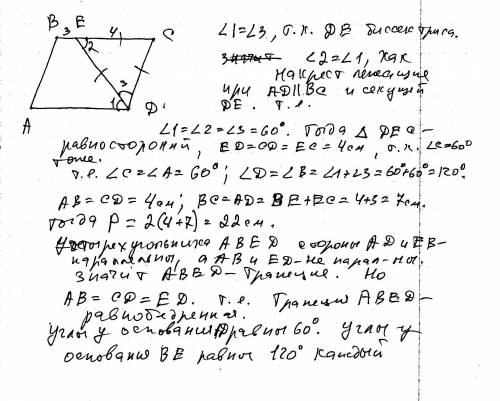 B 3 E 4 C
2
3
1
A D
∠1=∠3, т.к. DE биссектриса.
значит ∠2=∠1, как
накрест лежащие
при AD∥BC и секущей
DE. т.е.
∠1=∠2=∠3=60°. Тогда △ DEC –
равносторонний, ED=CD=EC=4см, т.к. ∠C=60°
тоже.
т.е. ∠C=∠A=60°; ∠D=∠B=∠1+∠3=60°+60°=120°.
AB=CD=4см; BC=AD=BE+EC=4+3=7см.
Тогда P=2(4+7)=22см.
Четырехугольника ABED стороны AD и EB-
параллельны, а AB и ED-не парал-ны.
значит ABED-Трапеция. Но
AB=CD=ED. т.е. Трапеция ABED-
равнобедренная.
Углы у основания равны 60°. Углы у
основания BE равны 120° каждый